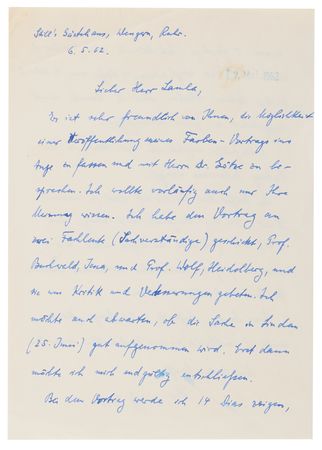 Still's Gästehaus, Wengern, Ruhr.
6.5.62.
7. Mai 1962
Lieber Herr Lamla,
Es ist sehr freundlich von Ihnen, die Möglichkeit
einer Veröffentlichung meines Farben-Vortrags ins
Auge zu fassen und mit Herrn Dr. Götze zu be-
sprechen. Ich wollte vorläufig auch nur Ihre
Meinung wissen. Ich habe den Vortrag an
zwei Fachleute (Sachverständige) geschickt, Prof.
Buchwald, Jena, und Prof. Wolf, Heidelberg, und
sie um Kritik und Verbesserungen gebeten. Ich
möchte auch abwarten, ob die Sache in Lindau
(25. Juni) gut aufgenommen wird. Erst dann
möchte ich mich endgültig entschließen.
Bei dem Vortrag werde ich 14 Dias zeigen,